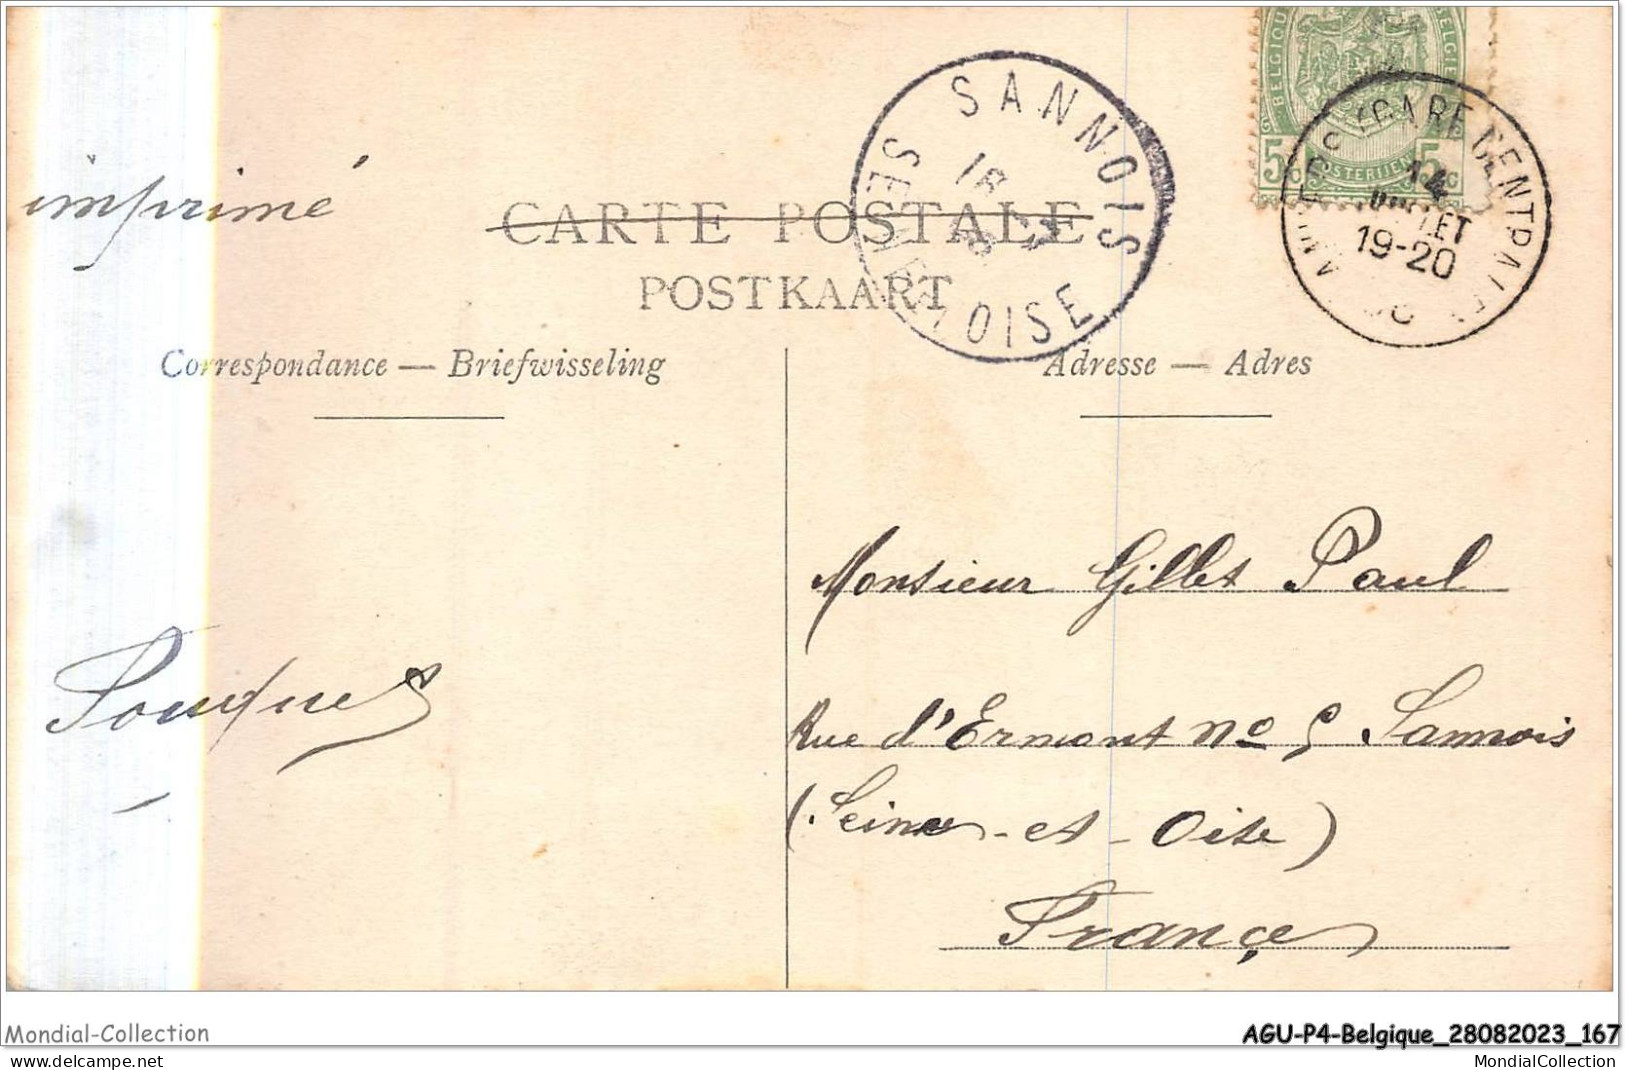 BELGIQUE BELGIE
5 c 5 c
POSTERIJEN
SANNOIS
SEINE-ET-OISE
16
(GARE CENTRALE)
14
JUILLET
19-20
imprimé
CARTE POSTALE
POSTKAART
Correspondance — Briefwisseling
Adresse — Adres
Monsieur Gillet Paul
Rue d'Ermont no 5 Sannois
(Seine-et-Oise)
France
Mondial-Collection
AGU-P4-Belgique_28082023_167
www.delcampe.net
MondialCollection